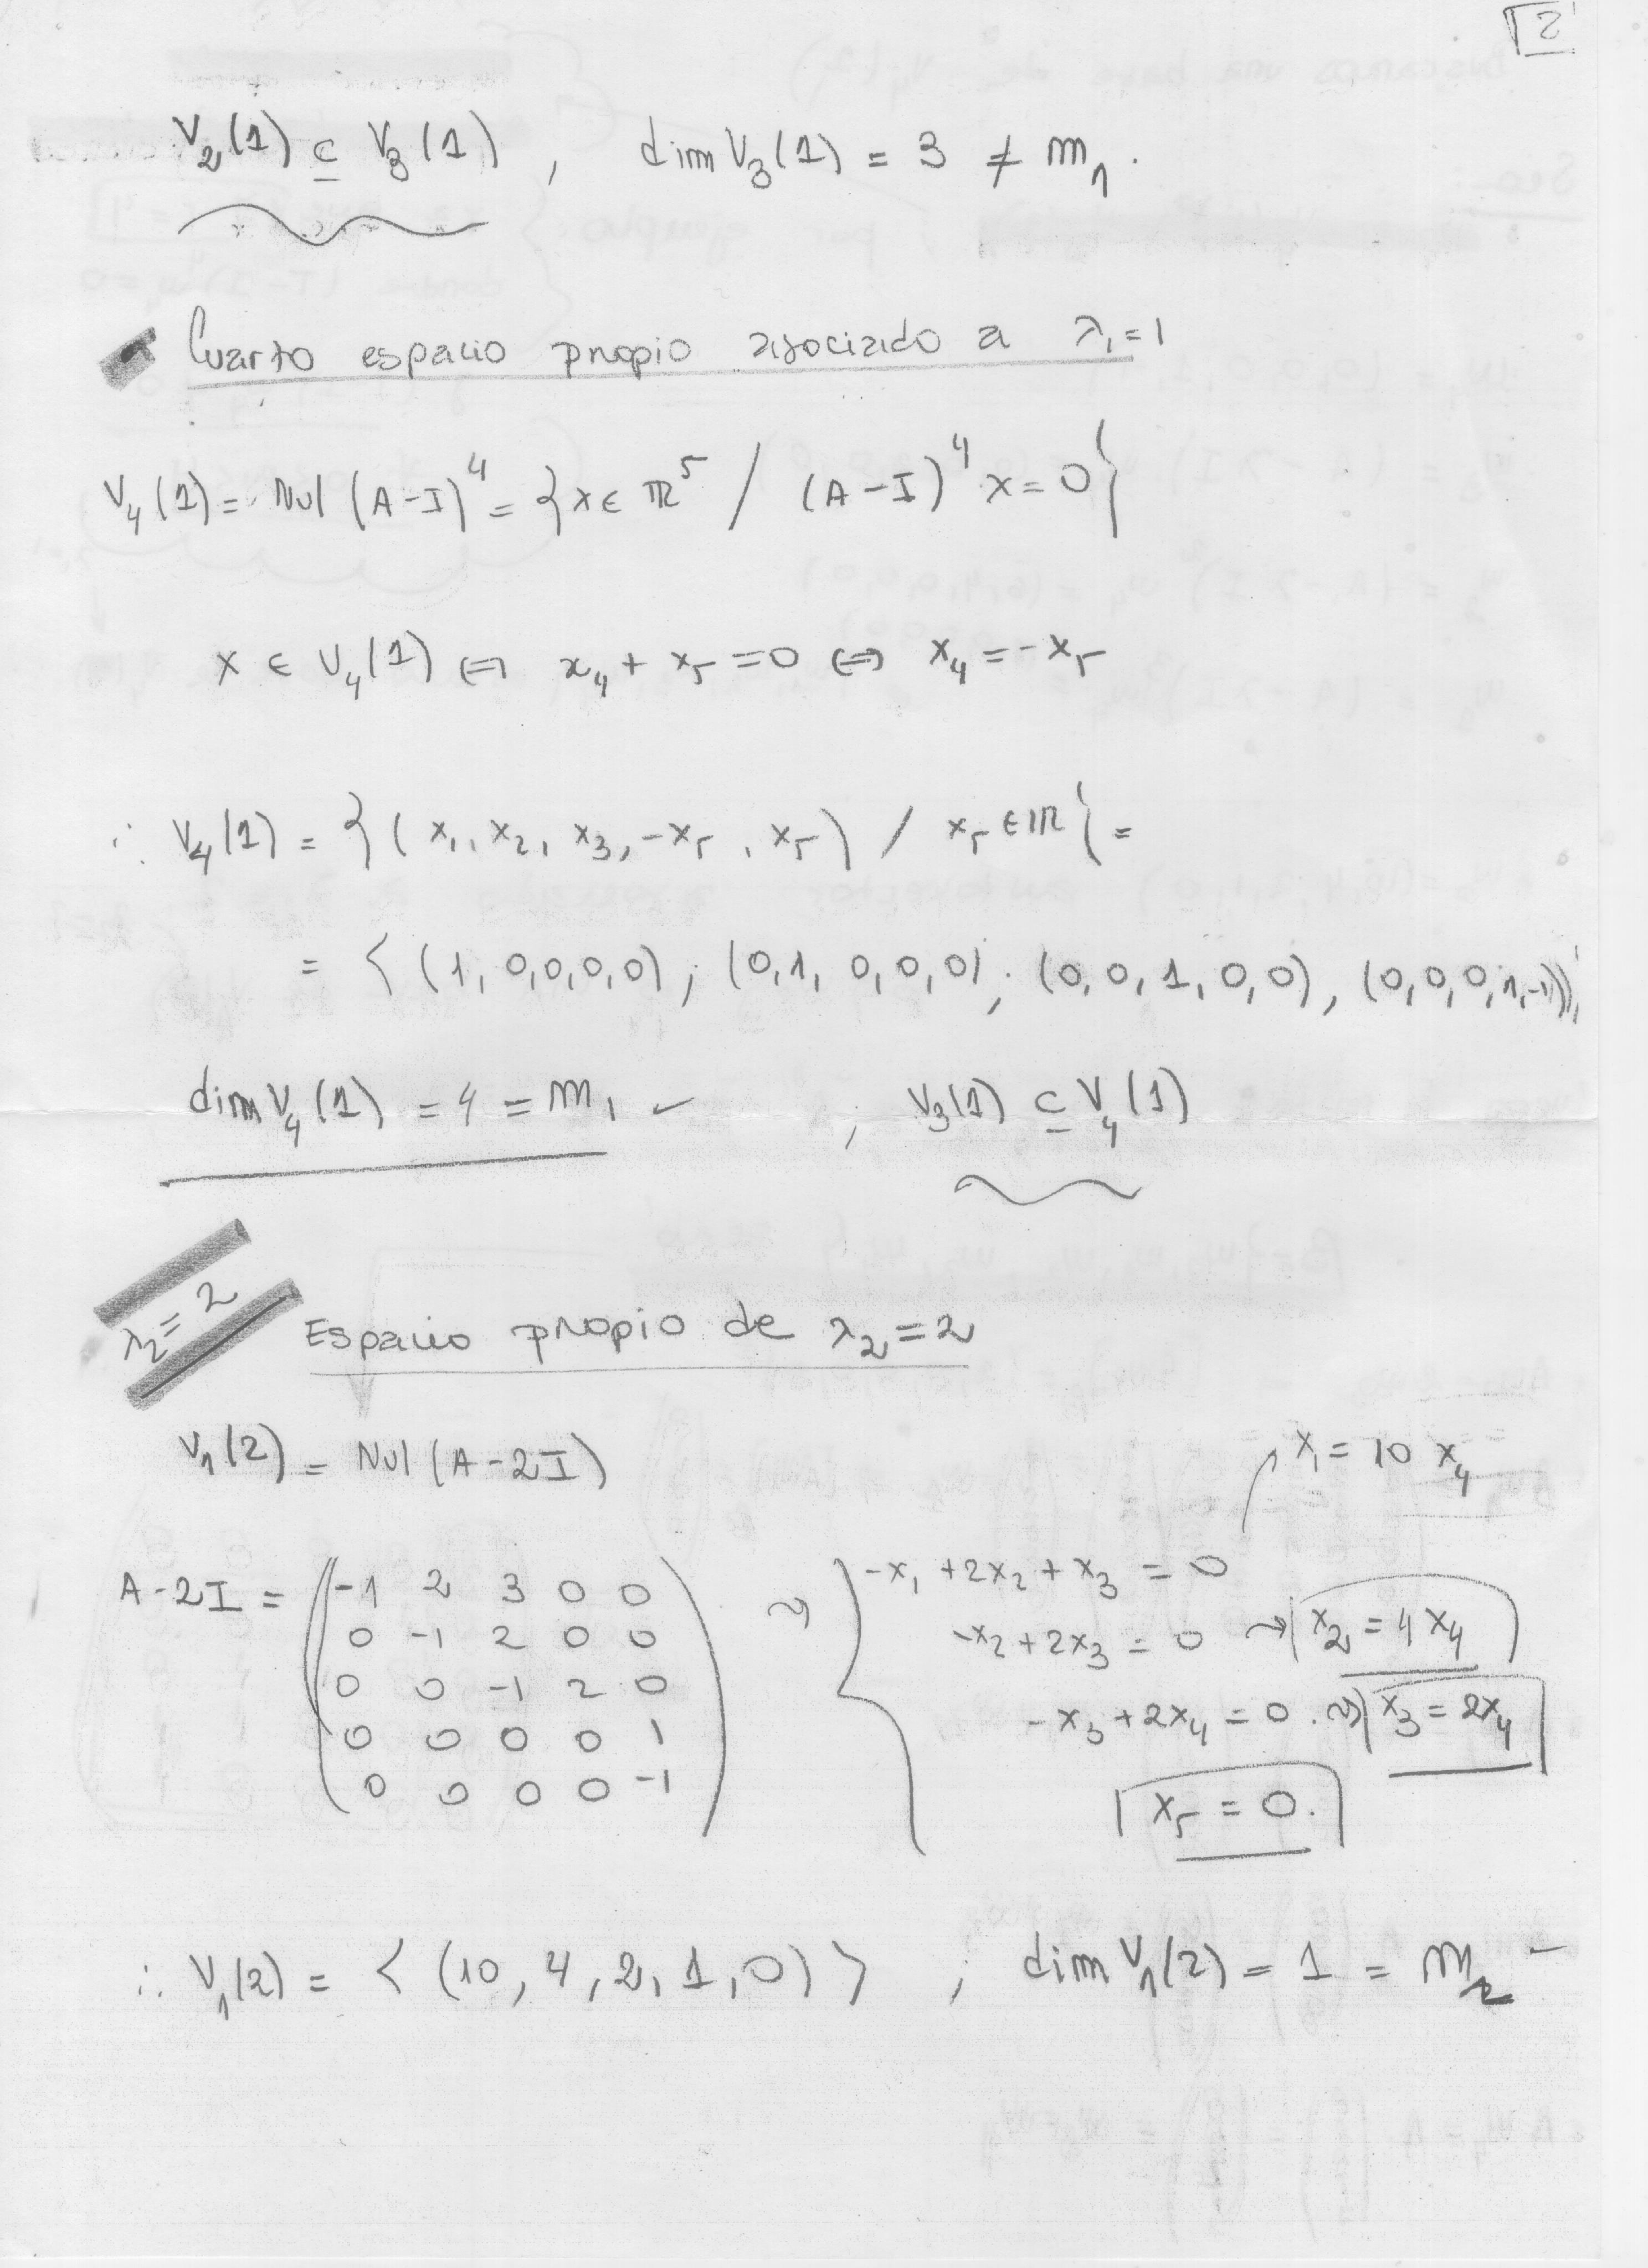 2
V₂(1) ⊆ V₃(1) , dim V₃(1) = 3 ≠ m₁.
Cuarto espacio propio asociado a λ₁=1
V₄(1) = Nul (A-I)⁴ = {x ∈ ℝ⁵ / (A-I)⁴ x = 0}
x ∈ V₄(1) ⇔ x₄ + x₅ = 0 ⇔ x₄ = -x₅
∴ V₄(1) = {(x₁, x₂, x₃, -x₅, x₅) / x₅ ∈ ℝ} =
= < (1,0,0,0,0); (0,1,0,0,0); (0,0,1,0,0), (0,0,0,1,-1)>,
dim V₄(1) = 4 = m₁ ✓ ; V₃(1) ⊆ V₄(1)
λ₂=2
Espacio propio de λ₂=2
V₁(2) = Nul (A-2I)
x₁ = 10 x₄
A-2I = ( -1 2 3 0 0
0 -1 2 0 0
0 0 -1 2 0
0 0 0 0 1
0 0 0 0 -1 ) ⇝ { -x₁ + 2x₂ + x₃ = 0
-x₂ + 2x₃ = 0 → x₂ = 4x₄
-x₃ + 2x₄ = 0. ⇝ x₃ = 2x₄
x₅ = 0.
∴ V₁(2) = < (10, 4, 2, 1, 0) > ; dim V₁(2) = 1 = m₂ -